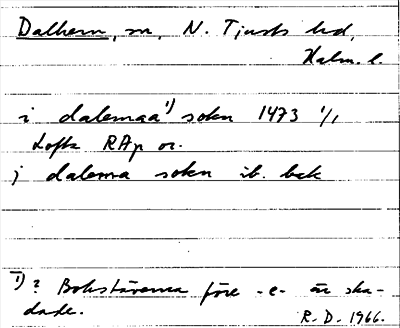 Dalhem, sn, N. Tjusts hd,
Kalm. l.
i dalemaa¹) sokn 1473 1/1
Lofta RAp or.
j dalema sokn ib. bak
¹) ? Bokstäverna före -e- är ska-
dade.
R. D. 1966.